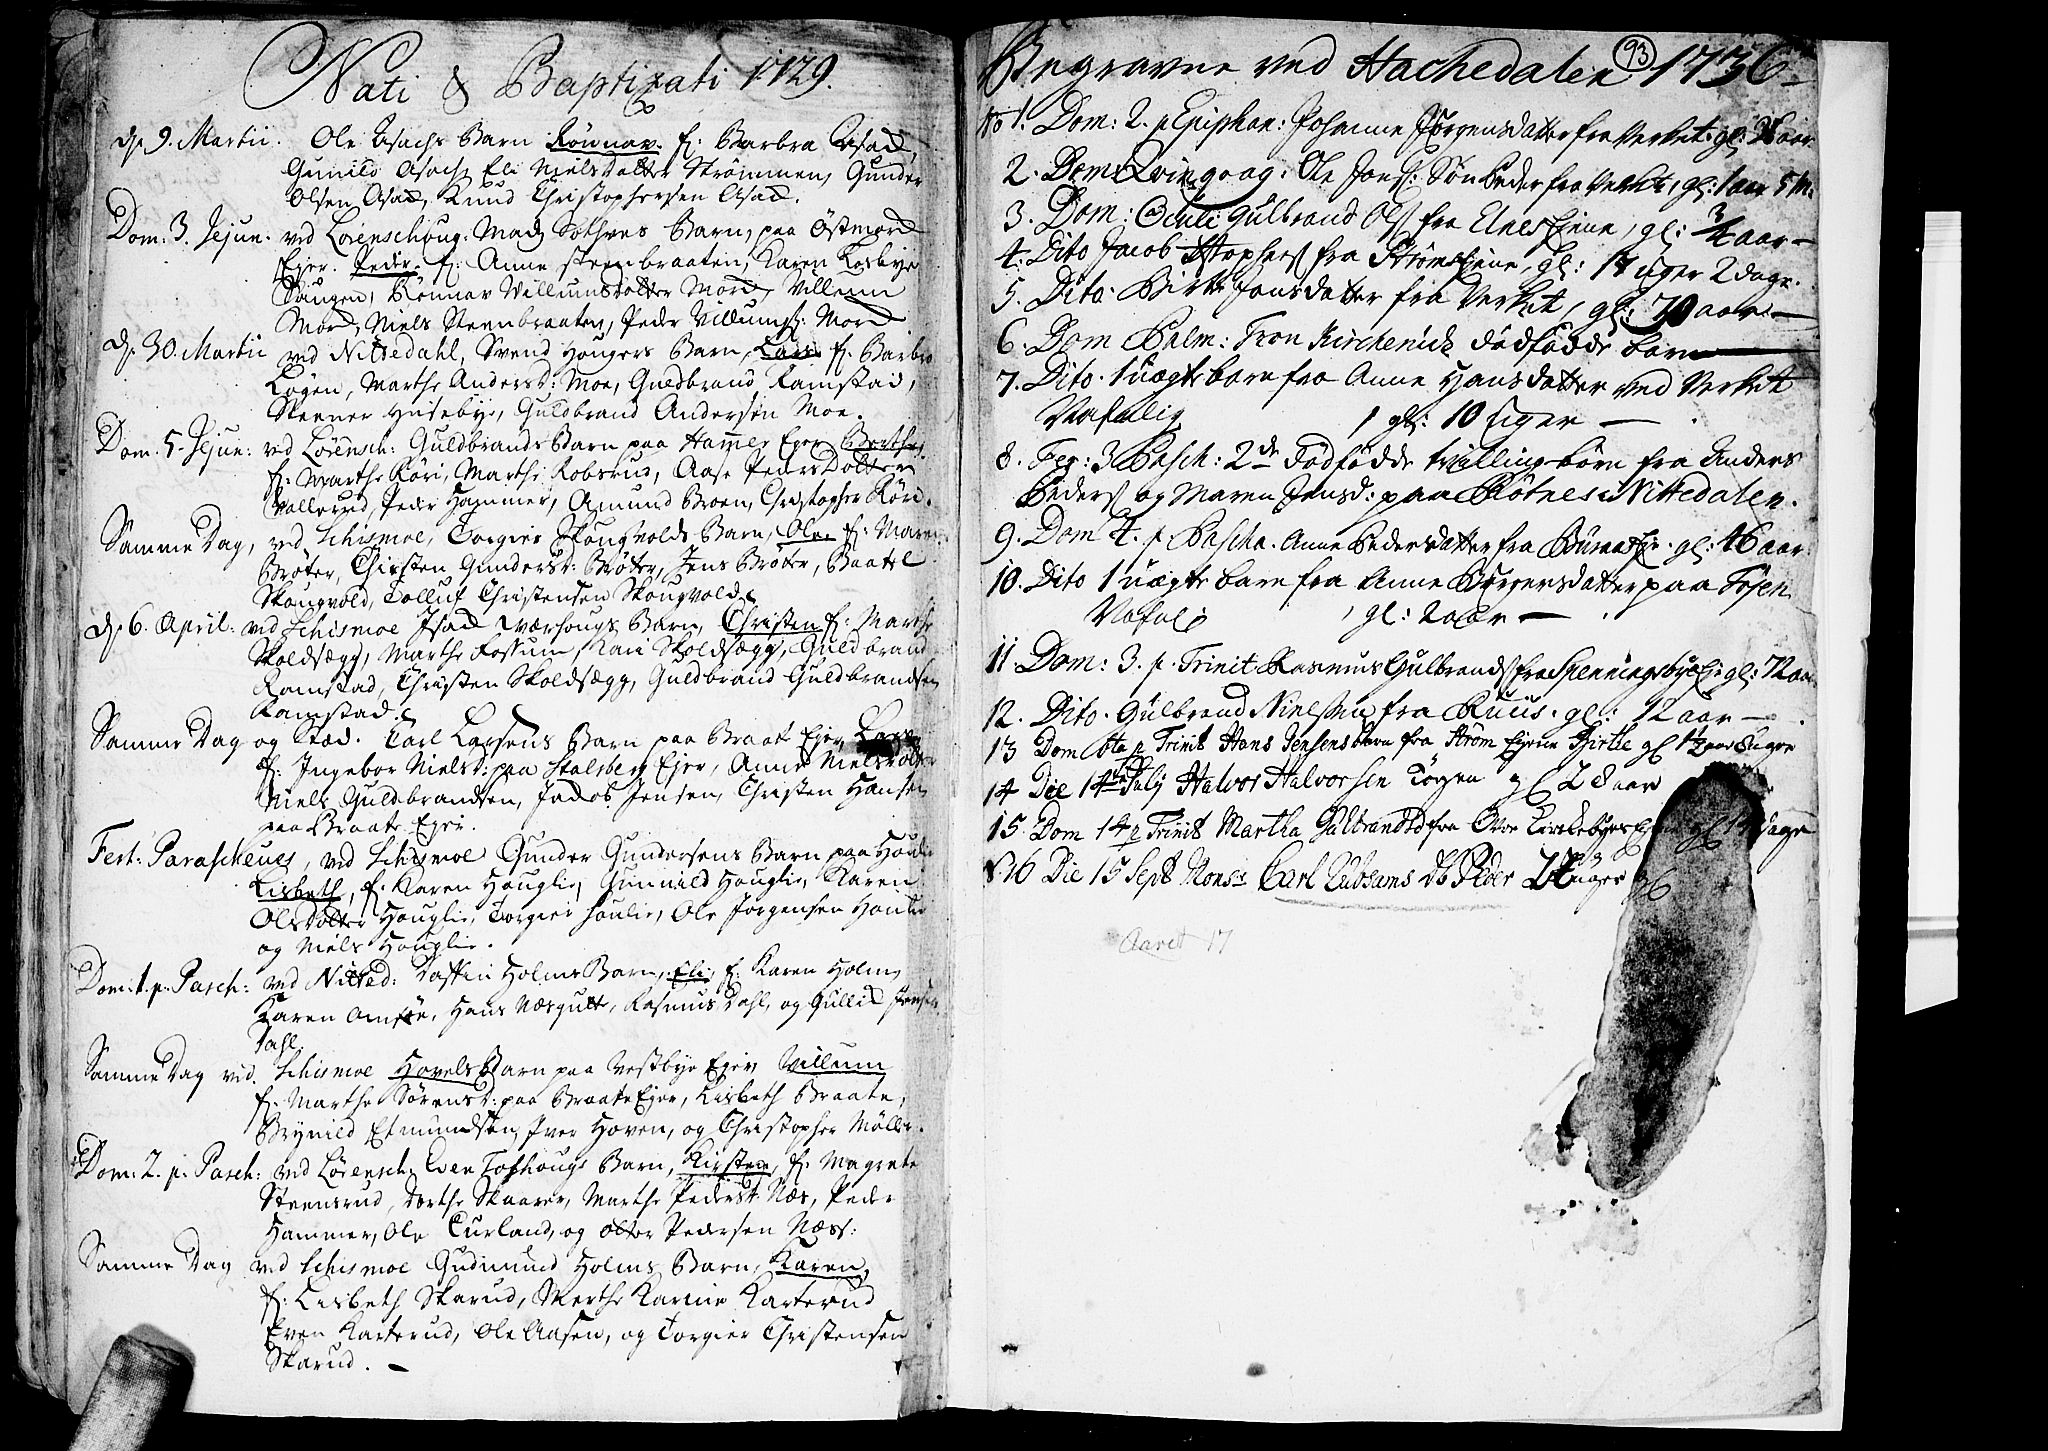 Nati & Baptizati 1729.
d. 9. Martii. Ole Asachs Barn Rönnav. f: Barbra Asad,
Gunild Asach, Eli Nielsdatter Strömmen, Gunder
Olsen Asad, Knud Christophersen Asad.
Dom: 3. Jejun: ved Lörenschoug. Mads Barn, paa Östmord
Ejer. Peder. f: Anne Steenbraaten, Karen Losbye
Haugen, Rönnav Villumsdatter Mord, Villum
Mord, Niels Steenbraaten, Peder Villums: Mord
d. 30. Martii ved Nittedahl, Svend Hougers Barn, Lars f: Barbro
Lögen, Marthe Anderst: Moe, Guldbrand Ramstad,
Steener Husebye, Guldbrand Andersen Moe.
Dom. 5. Jejun: ved Lörensch: Guldbrands Barn paa Hammer Ejer Berthe,
f: Marthe Röri, Marthe Robsrud, Aase PedersDatter
Vallerud, Peder Hammer, Amund Broen, Christopher Röri.
Samme Dag, ved Schismoe, Torgier Skougvolds Barn, Ole. f: Maren
Bröter, Christen Gunderst: Bröter, Jens Bröter, Baatel
Skougvold, Tolluf Christensen Skougvold
d. 6. April: ved Schismoe Isad Værhougs Barn, Christen f: Marthe
Skoldsægg, Marthe Fossum, Kari Skoldsægg, Guldbrand
Ramstad, Christen Skoldsægg, Guldbrand Guldbrandsen
Ramstad.
Samme Dag og Stæd. Carl Larsens Barn paa Braate Ejer, Lars
f: Ingebor Nielsd: paa Stalsberg Ejer, Anne Nielsdatter
Niels Guldbrandsen, Jacob Jensen, Christen Hansen
paa Braate Ejer.
Fest: Parasceues, ved Schismoe Gunder Gundersens Barn paa Houlie
Lisbeth, f: Karen Houglie, Gunnild Houglie, Karen
OlsDatter Houglie, Torgier Houlie, Ole Jörgensen Houlie
og Niels Houglie.
Dom: 1. p. Pasch: ved Nitted: Taffin Holms Barn, Eli, f: Karen Holm,
Karen, Hans Næsgutt, Rasmus Dahl, og Gullie Jensen
Dahl.
Samme Dag ved Schismoe Hovels Barn paa Vestbye Ejer Villum
f: Marthe Sörensd: paa Braate Ejer, Lisbeth Braate,
Brynild Etmundsen, Iver Hoven, og Christopher Möller.
Dom: 2. p. Pasch: ved Lörensch: Even Toshougs Barn, Kirsten, f: Magrete
Steensrud, Dorthe Skaarer, Marthe Pederst: Næs, Peder
Hammer, Ole Curland, og Otter Pedersen Næss:
Samme Dag ved Schismoe Gudmund Holms Barn, Karen,
f: Lisbeth Skarud, Marthe Karine Karterud
Even Karterud, Ole Aasen, og Torgier Christensen
Skarud. –
93
Begravne ved Hachedalen 1736.
No 1. Dom: 2. p Epiphan: Johanne Jörgensdatter fra Verket. gl: aar
2. Dom: Qvinqvag: Ole Jons: Sön Peder fra Verket, gl: 1 aar 5 M:
3. Dom: Oculi Gulbrand Ols fra Elnes Ejene, gl: 3/4 aar –
4. Dito Jacob Stophers fra Ströms Ejene, gl: 17 uger 2 dage.
5. Dito. Birte Jonsdatter fra Verket, gl: 70 aar –
6. Dom Palm: Tron Kirchenich dödfödde barn –
7. Dito. 1 uægte barn fra Anne Hansdatter ved Verket
1 gl: 10 uger –
8. Fer: 3 Pasch: 2de Födfödde tvilling-börn fra Anders
Peders og Maren Jensd: paa Rötnes i Nittedalen.
9. Dom 4. p. Pascha. Anne Pedersdatter fra Ejr. gl: 46 aar:
10. Dito 1 uægte barn fra Anne Börgersdatter paa Tosen.
gl: 2 aar –
11. Dom: 3. p. Trinit Rasmus Gulbrands fra Spenningsbye Ej: gl: 72 aar
12. Dito. Gulbrand Nielssen fra Ruus. gl: 12 aar –
13 Dom 6ta p Trinit Hans Jensens barn fra Ström Ejene Birthe gl 1½ aar 8 uger
14 Die 14de July Halvor Halvorsen Torgen gl 28 aar
15. Dom 14 p Trinit Martha Gulbrandsd fra Ovre Kirchebyes Ejene gl 14 dage
16 Die 15 Sept Monsr Carl Lubsams db Peder 24 uger gl
Aaret 17